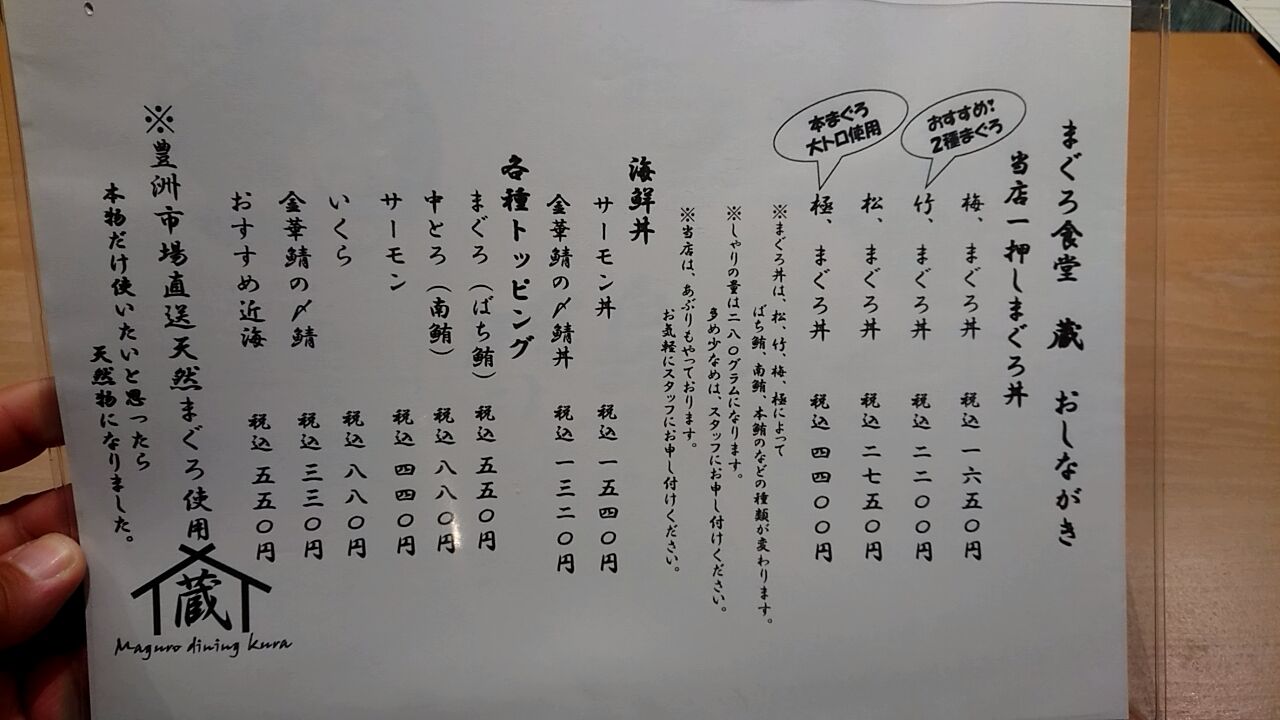 まぐろ食堂 蔵 おしながき
当店一押しまぐろ丼
梅、まぐろ丼 税込 一六五〇円
おすすめ!
2種まぐろ
竹、まぐろ丼 税込 二二〇〇円
松、まぐろ丼 税込 二七五〇円
本まぐろ
大トロ使用
極、まぐろ丼 税込 四四〇〇円
※まぐろ丼は、松、竹、梅、極によって
ばち鮪、南鮪、本鮪のなどの種類が変わります。
※しゃりの量は二八〇グラムになります。
多め少なめは、スタッフにお申し付けください。
※当店は、あぶりもやっております。
お気軽にスタッフにお申し付けください。
海鮮丼
サーモン丼 税込 一五四〇円
金華鯖の〆鯖丼 税込 一三二〇円
各種トッピング
まぐろ(ばち鮪) 税込 五五〇円
中とろ(南鮪) 税込 八八〇円
サーモン 税込 四四〇円
いくら 税込 八八〇円
金華鯖の〆鯖 税込 三三〇円
おすすめ近海 税込 五五〇円
※豊洲市場直送天然まぐろ使用
本物だけ使いたいと思ったら
天然物になりました。
蔵
Maguro dining kura